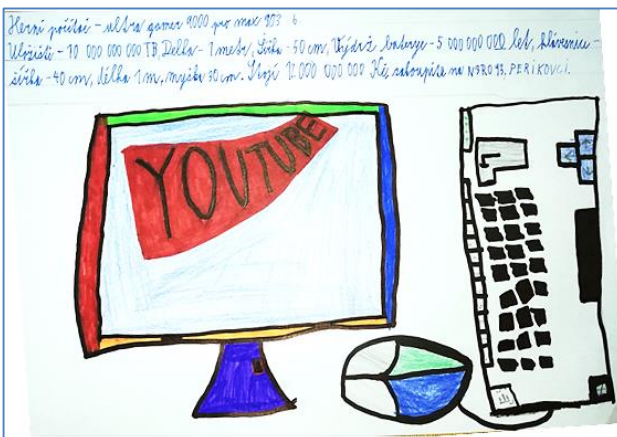 Herní počítač - ultra gamer 9000 pro max 103 6
Uložiště - 10 000 000 000 TB, Délka - 1 metr, Šířka - 50 cm, Výdrž baterye - 5 000 000 000 let, klávesnice -
šířka - 40 cm, délka 1 m, myška 30 cm. Stojí 12 000 000 000 Kč, zakoupíte na PERIKOVCI.
YOUTUBE